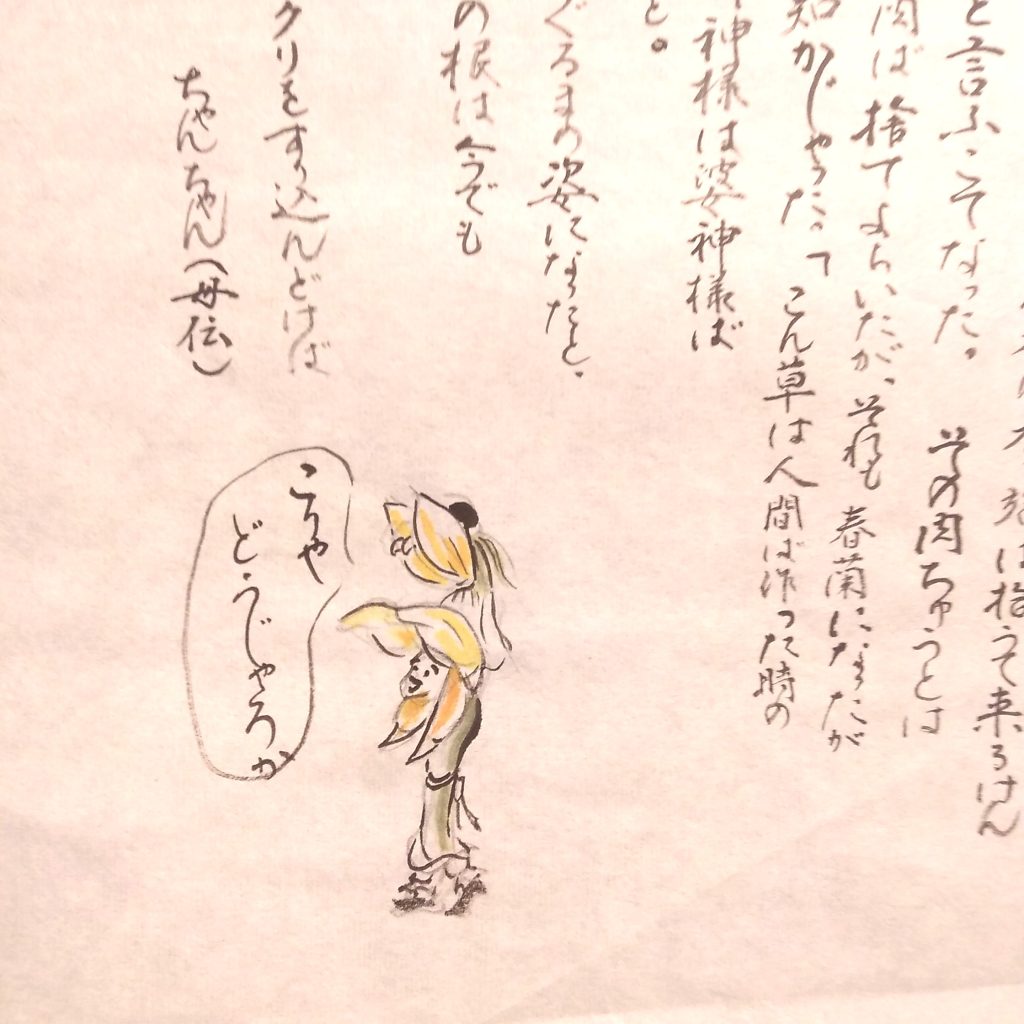 は捨うて来るけん
と言ふこてなった。その肉ちゅうとは
肉ば捨てよらいたが、それも春蘭になったが
知かじゃったって こん草は人間ば作った時の
神様は婆神様ば
と。
ぐるまの姿になったと。
の根は今でも
クリをすり込んどけば
ちゃんちゃん(母伝)
こりや
どうじゃろか